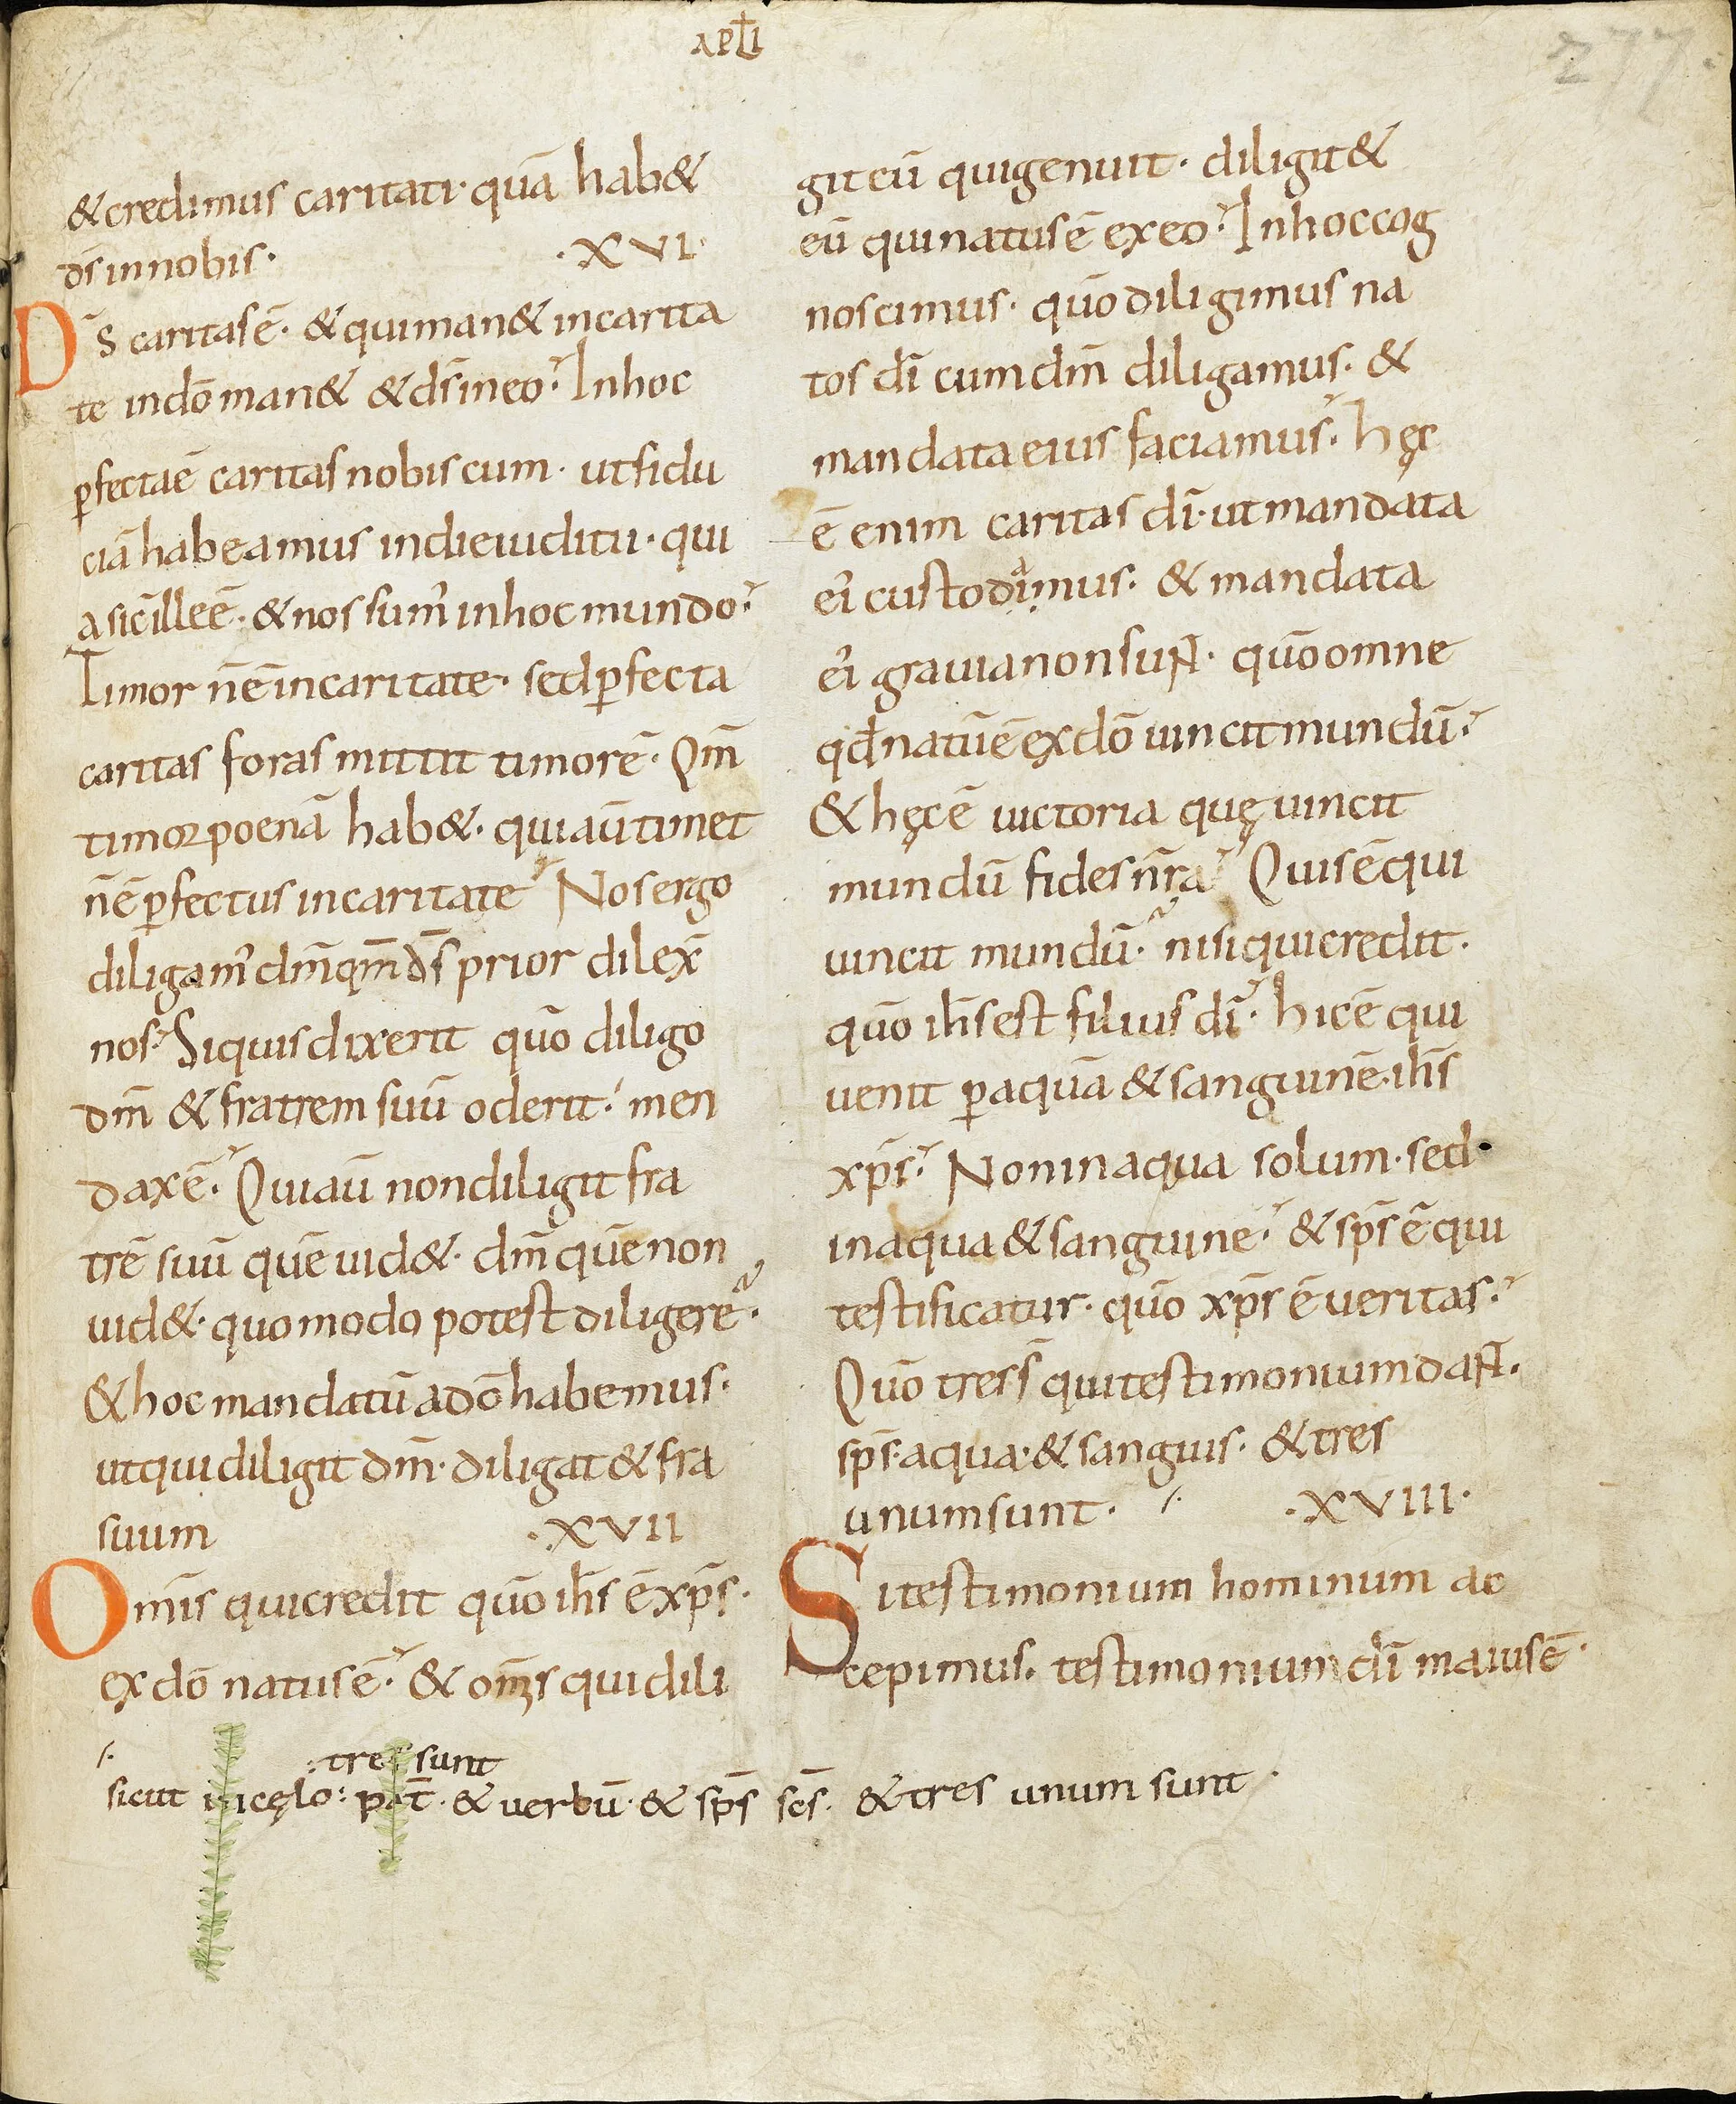 APŁI
277
& credimus caritati· quā hab&
ds̄ in nobis· ·XVI·
Ds̄ caritas ē· & qui man& in carita
te in dō man& & ds̄ in eo· In hoc
ꝑfecta ē caritas nobiscum· ut fidu
ciā habeamus in die iuditii· qui
a sic ille ē· & nos sum' in hoc mundo·
Timor n̄ ē in caritate· sed ꝑfecta
caritas foras mittit timorē· Qm̄
timor poenā hab&· qui aū timet
n̄ ē ꝑfectus in caritate Nos ergo
diligam' dm̄ qm̄ ds̄ prior dilex̄
nos· Si quis dixerit quō diligo
dm̄ & fratrem suū oderit· men
dax ē· Qui aū non diligit fra
trē suū quē uid&· dm̄ quē non
uid&· quomodo potest diligere·
& hoc mandatū a dō habemus·
ut qui diligit dm̄· diligat & fra
suum ·XVII
Omīs qui credit quō ihs̄ ē xp̄s·
ex dō natus ē· & om̄s qui dili
git eū qui genuit· diligit &
eū qui natus ē ex eo· In hoc cog
noscimus· quō diligimus na
tos dī cum dm̄ diligamus· &
mandata eius faciamus· hęc
ē enim caritas dī· ut mandata
ei' custodiamus· & mandata
ei' grauia non sunt· quō omne
qd̄ natū ē ex dō uincit mundū·
& hęc ē uictoria quę uincit
mundū fides nr̄a· Quis ē qui
uincit mundū· nisi qui credit·
quō ihs̄ est filius dī· hic ē qui
uenit ꝑ aquā & sanguinē· ihs̄
xp̄s· Non in aqua solum· sed·
in aqua & sanguine· & sp̄s ē qui
testificatur· quō xp̄s ē ueritas·
Quō tres s̄ qui testimonium dant·
sp̄s· aqua· & sanguis· & tres
unum sunt· /· ·XVIII·
Si testimonium hominum ac
cepimus· testimonium dī maius ē·
/· : tres sunt
sicut in cęlo: pat̄· & uerbū· & sp̄s scs̄· & tres unum sunt·